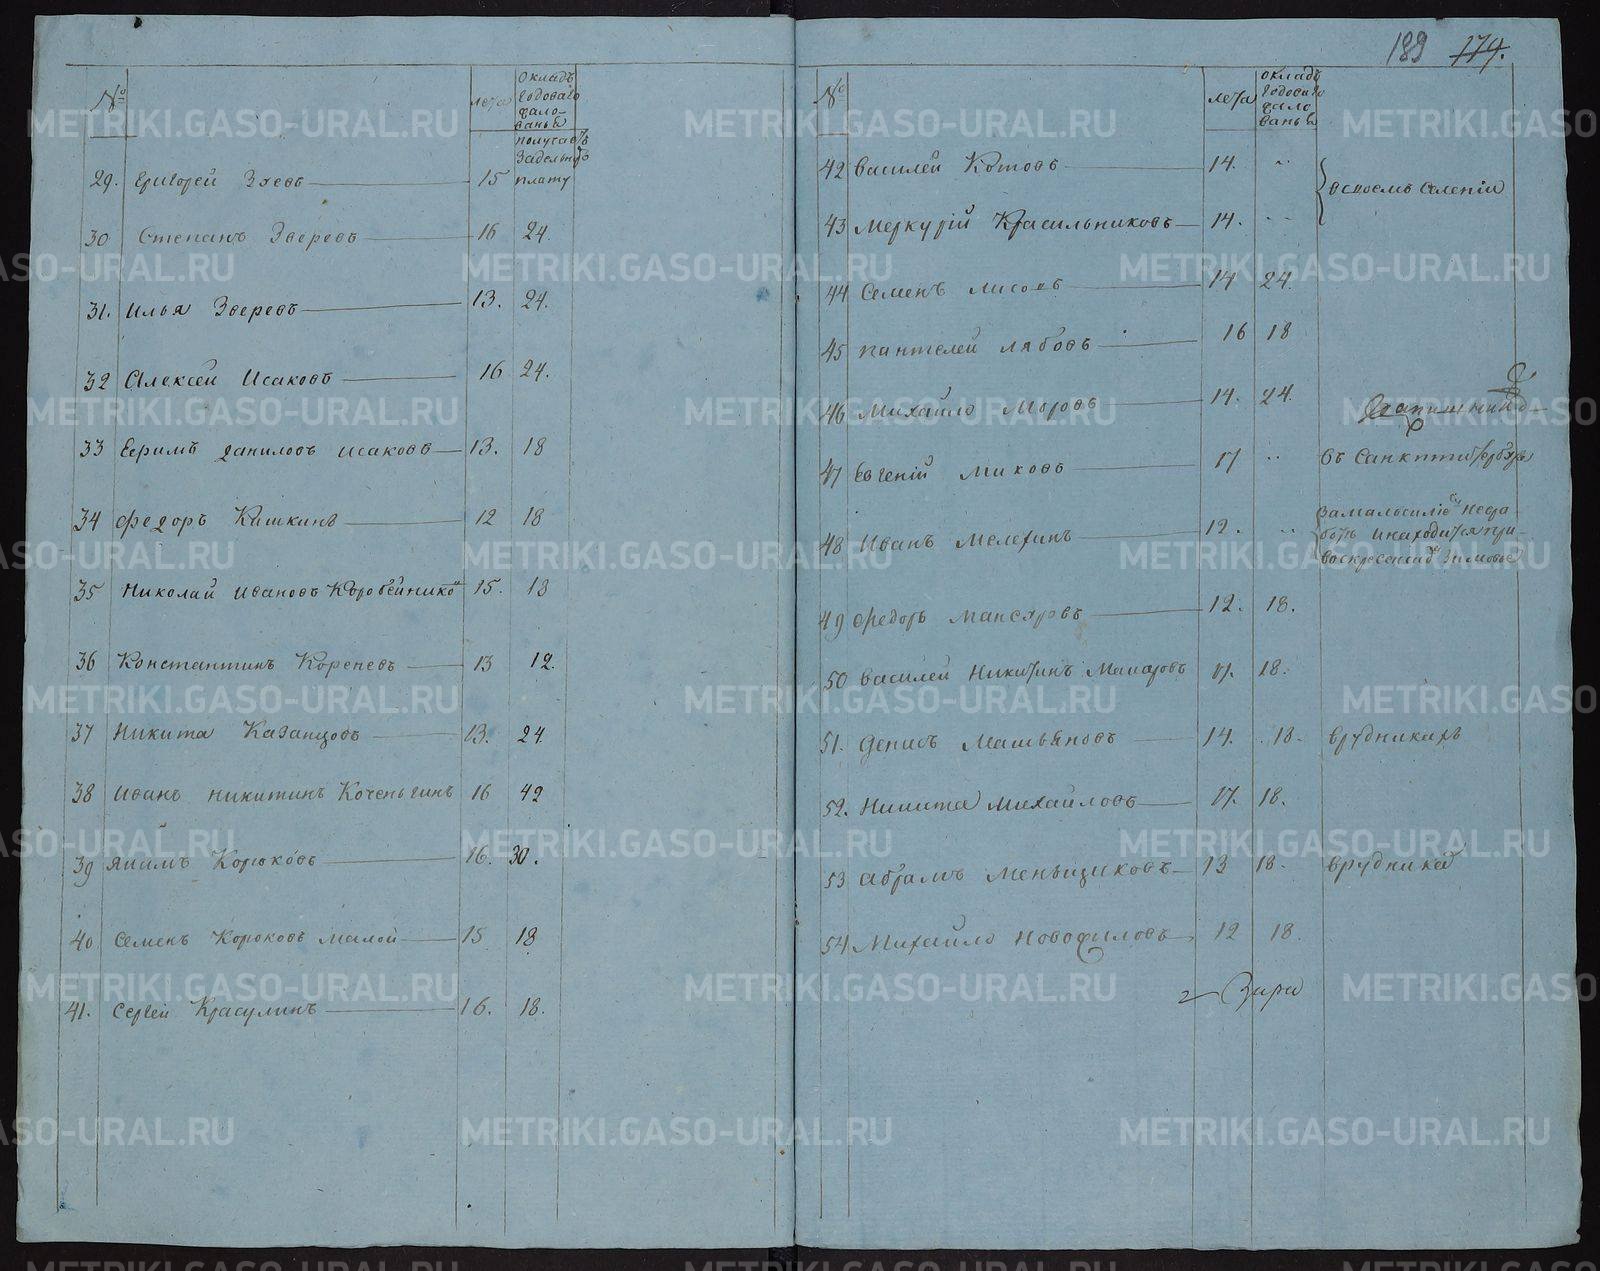 № лета окладъ годоваго жалованья
получаетъ задельную плату
29. Григорей Зуевъ 15
30 Степанъ Зверевъ 16 24.
31. Илья Зверевъ 13. 24.
32 Алексей Исаковъ 16 24.
33 Ефимъ Даниловъ Исаковъ 13. 18
34 Федоръ Кишкинъ 12 18
35 Николай Ивановъ Коробейнико 15. 18
36 Константинъ Кореневъ 13 12.
37 Никита Казанцовъ 13. 24
38 Иванъ Никитинъ Коченьгинъ 16 42
39 Якимъ Корюковъ 16. 30.
40 Семенъ Корюковъ малой 15 18
41. Сергей Красулинъ 16. 18.
189 174.
№ лета окладъ годоваго жалованья
42 Василей Котовъ 14. в своемъ селении
43 Меркурій Красильниковъ 14.
44 Семенъ Лисовъ 14 24.
45 Пантелей Лябовъ 16 18
46 Михайло Моровъ 14. 24.
47 Евгеній Миховъ 17 въ Санкпитербурхе
48 Иванъ Мелехинъ 12.
49 Федоръ Мансуровъ 12. 18.
50 Василей Никитинъ 17. 18.
51. Денисъ 14. 18. врудникахъ
52. Никита Михайловъ 17. 18.
53 Абрамъ Меньщиковъ 13 18. врудникѣ
54 Михайло Новофиловъ 12 18.
METRIKI.GASO-URAL.RU